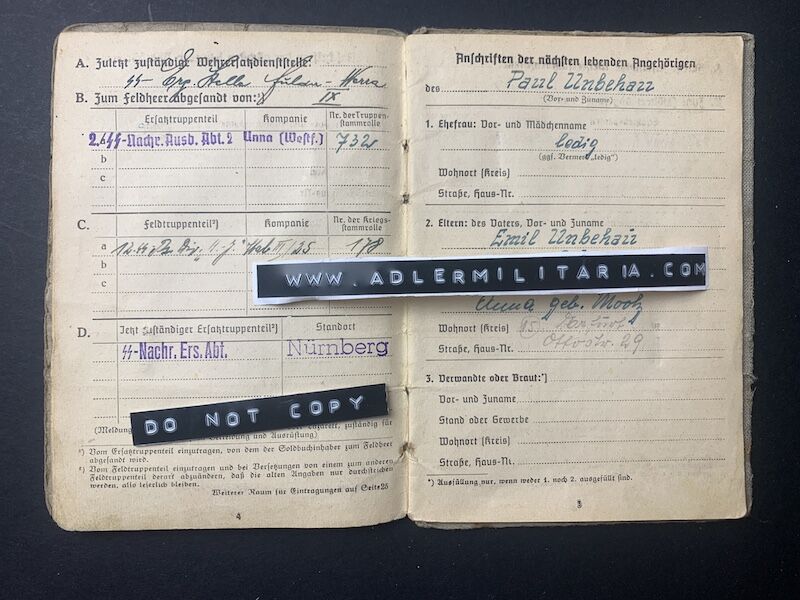 A. Zuletzt zuständige Wehrersatzdienststelle:
SS- Erg. Stelle Fulda-Werra
B. Zum Feldheer abgesandt von:¹) IX
Ersatztruppenteil Kompanie Nr. der Truppenstammrolle
2.SS-Nachr. Ausb. Abt. 2 Unna (Westf.) 732
b
c
C. Feldtruppenteil²) Kompanie Nr. der Kriegsstammrolle
a 12. SS Pz Div. "H.J." Stab II/25 178
b
c
D. Jetzt zuständiger Ersatztruppenteil²) Standort
SS-Nachr. Ers. Abt. Nürnberg
DO NOT COPY
(Meldung zuständig für
Ausrüstung)
¹) Vom Ersatztruppenteil einzutragen, von dem der Soldbuchinhaber zum Feldheer
abgesandt wird.
²) Vom Feldtruppenteil einzutragen und bei Versetzungen von einem zum anderen
Feldtruppenteil derart abzuändern, daß die alten Angaben nur durchstrichen
werden, also leserlich bleiben.
Weiterer Raum für Eintragungen auf Seite 25
4
Anschriften der nächsten lebenden Angehörigen
des Paul Unbehau
(Vor- und Zuname)
1. Ehefrau: Vor- und Mädchenname
ledig
(ggf. Vermerk „ledig“)
Wohnort (Kreis)
Straße, Haus-Nr.
2. Eltern: des Vaters, Vor- und Zuname
Emil Unbehau
WWW.ADLERMILITARIA.COM
Anna geb.
Wohnort (Kreis)
Straße, Haus-Nr. 29
3. Verwandte oder Braut:*)
Vor- und Zuname
Stand oder Gewerbe
Wohnort (Kreis)
Straße, Haus-Nr.
*) Ausfüllung nur, wenn weder 1. noch 2. ausgefüllt sind.